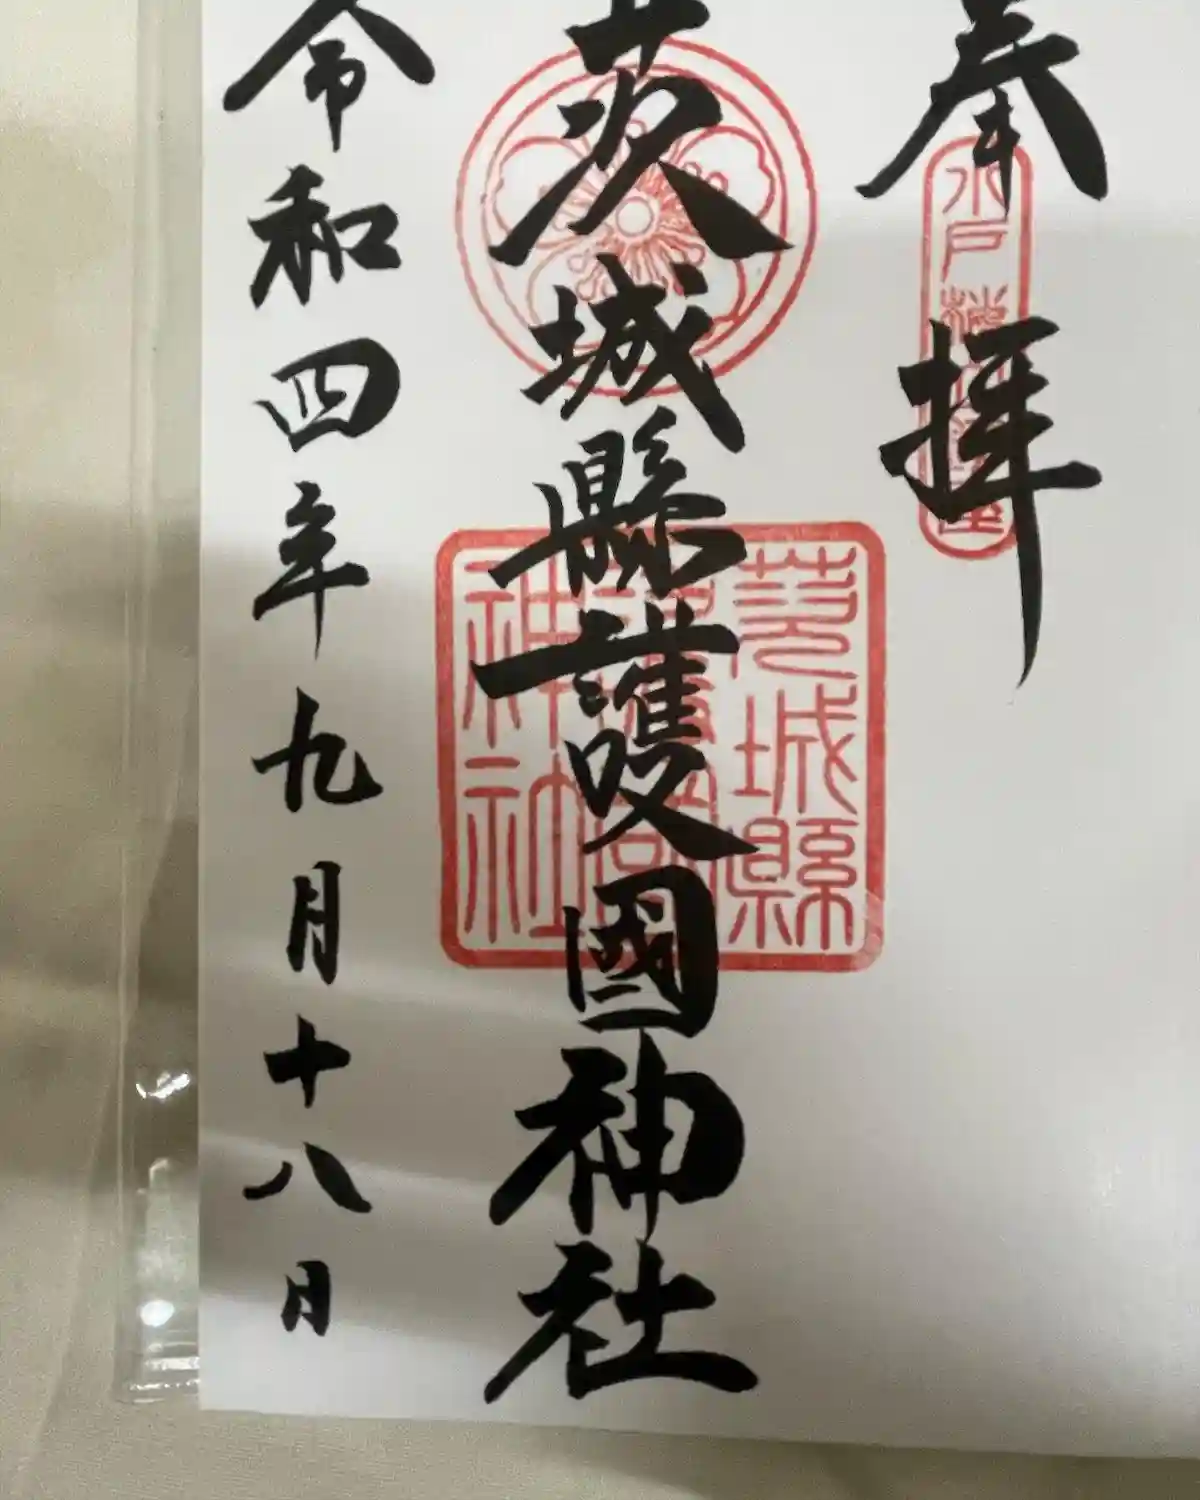 奉拝
水戸
茨城縣護國神社
茨城縣護國神社
令和四年九月十八日